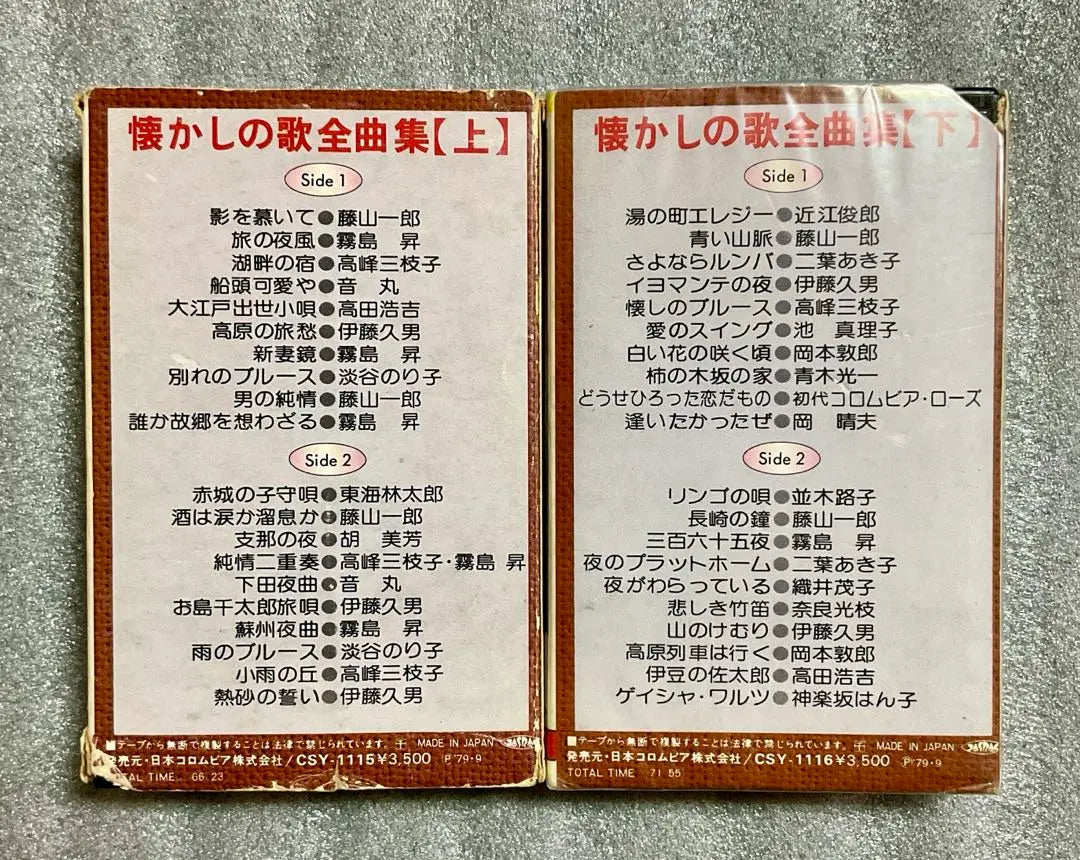 懐かしの歌全曲集【上】
Side 1
影を慕いて●藤山一郎
旅の夜風●霧島 昇
湖畔の宿●高峰三枝子
船頭可愛や●音 丸
大江戸出世小唄●高田浩吉
高原の旅愁●伊藤久男
新妻鏡●霧島 昇
別れのブルース●淡谷のり子
男の純情●藤山一郎
誰か故郷を想わざる●霧島 昇
Side 2
赤城の子守唄●東海林太郎
酒は涙か溜息か●藤山一郎
支那の夜●胡 美芳
純情二重奏●高峰三枝子・霧島 昇
下田夜曲●音 丸
お島千太郎旅唄●伊藤久男
蘇州夜曲●霧島 昇
雨のブルース●淡谷のり子
小雨の丘●高峰三枝子
熱砂の誓い●伊藤久男
■テープから無断で複製することは法律で禁じられています。 MADE IN JAPAN
発売元・日本コロムビア株式会社/CSY-1115¥3,500 P'79・9
TOTAL TIME 66 23
懐かしの歌全曲集【下】
Side 1
湯の町エレジー●近江俊郎
青い山脈●藤山一郎
さよならルンバ●二葉あき子
イヨマンテの夜●伊藤久男
懐しのブルース●高峰三枝子
愛のスイング●池 真理子
白い花の咲く頃●岡本敦郎
柿の木坂の家●青木光一
どうせひろった恋だもの●初代コロムビア・ローズ
逢いたかったぜ●岡 晴夫
Side 2
リンゴの唄●並木路子
長崎の鐘●藤山一郎
三百六十五夜●霧島 昇
夜のプラットホーム●二葉あき子
夜がわらっている●織井茂子
悲しき竹笛●奈良光枝
山のけむり●伊藤久男
高原列車は行く●岡本敦郎
伊豆の佐太郎●高田浩吉
ゲイシャ・ワルツ●神楽坂はん子
■テープから無断で複製することは法律で禁じられています。 MADE IN JAPAN
発売元・日本コロムビア株式会社/CSY-1116¥3,500 P'79・9
TOTAL TIME 71 55